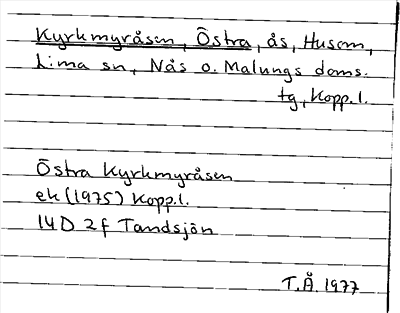 Kyrkmyråsen, Östra, ås, Husom,
Lima sn, Nås o. Malungs doms.
tg, Kopp.l.
Östra Kyrkmyråsen
ek (1975) Kopp.l.
14D 2f Tandsjön
T.Å. 1977